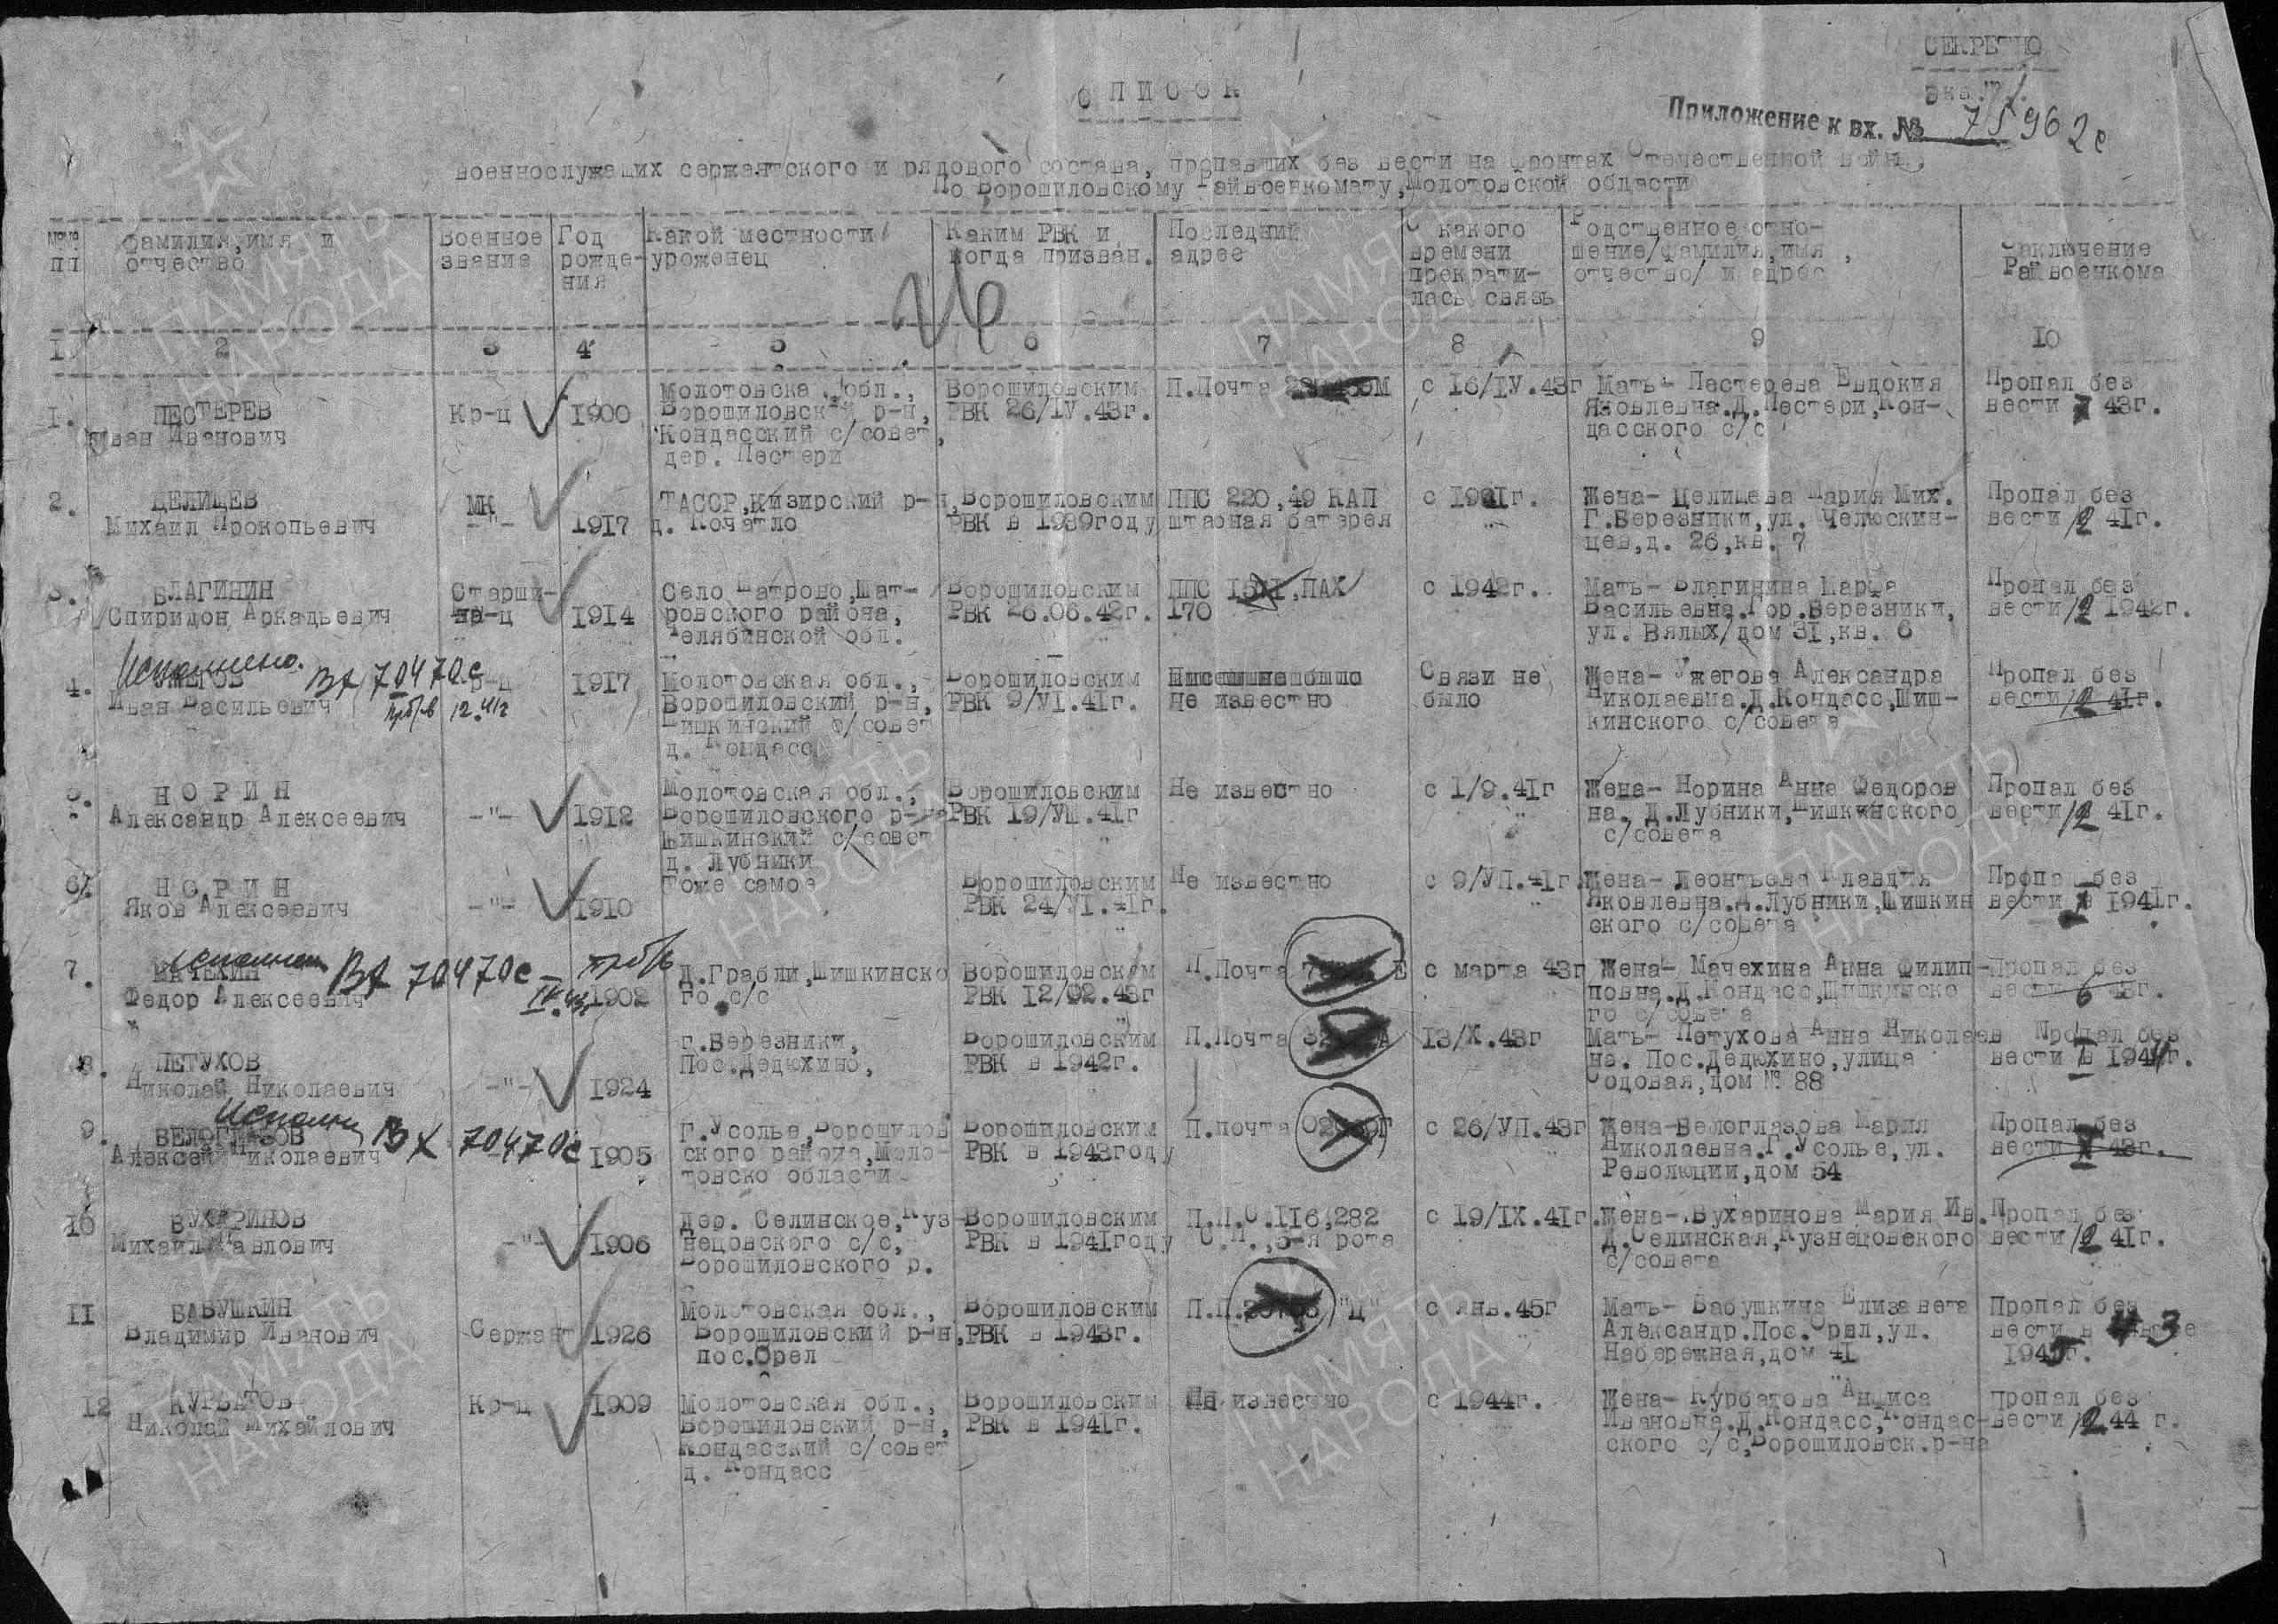 СЕКРЕТНО
Экз.№ 1.
СПИСОК
Приложение к вх. № 75962с
военнослужащих сержантского и рядового состава, пропавших без вести на фронтах Отечественной войны,
По Ворошиловскому Райвоенкомату, Молотовской области
№№ пп
Фамилия, имя и отчество
Военное звание
Год рожде-ния
Какой местности уроженец
Каким РВК и когда призван.
Последний адрес
С какого времени прекрати-лась связь
Родственное отно-шение/фамилия, имя, отчество/ и адрес
Заключение Райвоенкома
26
1 2 3 4 5 6 7 8 9 10
1. ПЕСТЕРЕВ
Иван Иванович
Кр-ц
1900
Молотовска обл.,
Ворошиловский р-н,
Кондасский с/совет,
дер. Пестери
Ворошиловским
РВК 26/IУ.43г.
П.Почта
с 16/IУ.43г
Мать- Пестерева Евдокия
Яковлевна.Д.Пестери,Кон-
дасского с/с
Пропал без
вести 43г.
2. ЦЕЛИЩЕВ
Михаил Прокопьевич
МК
-"-
1917
ТАССР,Кизирский р-н,
д. Кочатло
Ворошиловским
РВК в 1939году
ППС 220,49 КАП
штабная батарея
с 1941г.
Жена- Целищева Мария Мих.
Г.Березники,ул. Челюскин-
цев,д. 26,кв. 7
Пропал без
вести 12 41г.
3. БЛАГИНИН
Спиридон Аркадьевич
Старши-
на-ц
1914
Село Шатрово,Шат-
ровского района,
Челябинской обл.
Ворошиловским
РВК 26.06.42г.
ППС 1511,ПАХ
170
с 1942г.
Мать- Благинина Марфа
Васильевна.Гор.Березники,
ул. Вялых/дом 31,кв. 6
Пропал без
вести 12 1942г.
Исполнено. Вх 70470с
4. УЖЕГОВ
Иван Васильевич
пр б/в 12.41г
1917
Молотовская обл.,
Ворошиловский р-н,
Шишкинский с/совет
д. Кондасс
Ворошиловским
РВК 9/УI.41г.
Не известно
Связи не
было
Жена- Ужегова Александра
Николаевна.Д.Кондасс,Шиш-
кинского с/совета
Пропал без
вести 12 41г.
5. НОРИН
Александр Алексеевич
-"-
1912
Молотовская обл.,
Ворошиловского р-на
Шишкинский с/совет
д. Лубники
Ворошиловским
РВК 19/УШ.41г
Не известно
с 1/9.41г
Жена- Норина Анна Федоров
на. Д.Лубники,Шишкинского
с/совета
Пропал без
вести 12 41г.
6. НОРИН
Яков Алексеевич
-"-
1910
Тоже самое
Ворошиловским
РВК 24/УI.41г.
Не известно
с 9/УП.41г.
Жена- Леонтьева Клавдия
Яковлевна.Д.Лубники,Шишкин
ского с/совета
Пропал без
вести 1941г.
Исполнено Вх 70470с - пр б/в
7. МАЧЕХИН
Федор Алексеевич
IV.43.
1902
Д.Грабли,Шишкинско
го с/с
Ворошиловским
РВК 12/02.43г
П.Почта Е
с марта 43г
Жена- Мачехина Анна Филип-
повна.Д.Кондасс,Шишкинско
го с/совета
Пропал без
вести 6 43г.
8. ПЕТУХОВ
Николай Николаевич
-"-
1924
г.Березники,
Пос.Дедюхино,
Ворошиловским
РВК в 1942г.
П.Почта
13/Х.43г
Мать- Петухова Анна Николаев
на. Пос.Дедюхино,улица
Содовая,дом № 88
Пропал без
вести I 1944г.
Исполнен Вх 70470с
9. БЕЛОГЛАЗОВ
Алексей Николаевич
1905
Г.Усолье,Ворошилов
ского района,Моло-
товско области
Ворошиловским
РВК в 1943году
П.почта
с 26/УП.43г
Жена-Белоглазова Мария
Николаевна.Г.Усолье,ул.
Революции,дом 54
Пропал без
вести X 43г.
10 БУХАРИНОВ
Михаил Павлович
-"-
1906
Дер. Селинское,Куз-
нецовского с/с,
Ворошиловского р.
Ворошиловским
РВК в 1941году
П.П.С.116,282
С.П.,5-я рота
с 19/IХ.41г.
Жена- Бухаринова Мария Ив.
Д.Селинская,Кузнецовского
с/совета
Пропал без
вести 12 41г.
11 БАБУШКИН
Владимир Иванович
Сержант
1926
Молотовская обл.,
Ворошиловский р-н,
пос.Орел
Ворошиловским
РВК в 1943г.
П.П. "Ц"
с янв.45г
Мать- Бабушкина Елизавета
Александр.Пос.Орел,ул.
Набережная,дом 41
Пропал без
вести в 43
1945г.
12 КУРБАТОВ
Николай Михайлович
Кр-ц
1909
Молотовская обл.,
Ворошиловский р-н,
Кондасский с/совет
д. Кондасс
Ворошиловским
РВК в 1941г.
Не известно
с 1944г.
Жена- Курбатова Анфиса
Ивановна.Д.Кондасс,Кондас-
ского с/с,Ворошиловск.р-на
Пропал без
вести 12 44 г.
ПАМЯТЬ НАРОДА